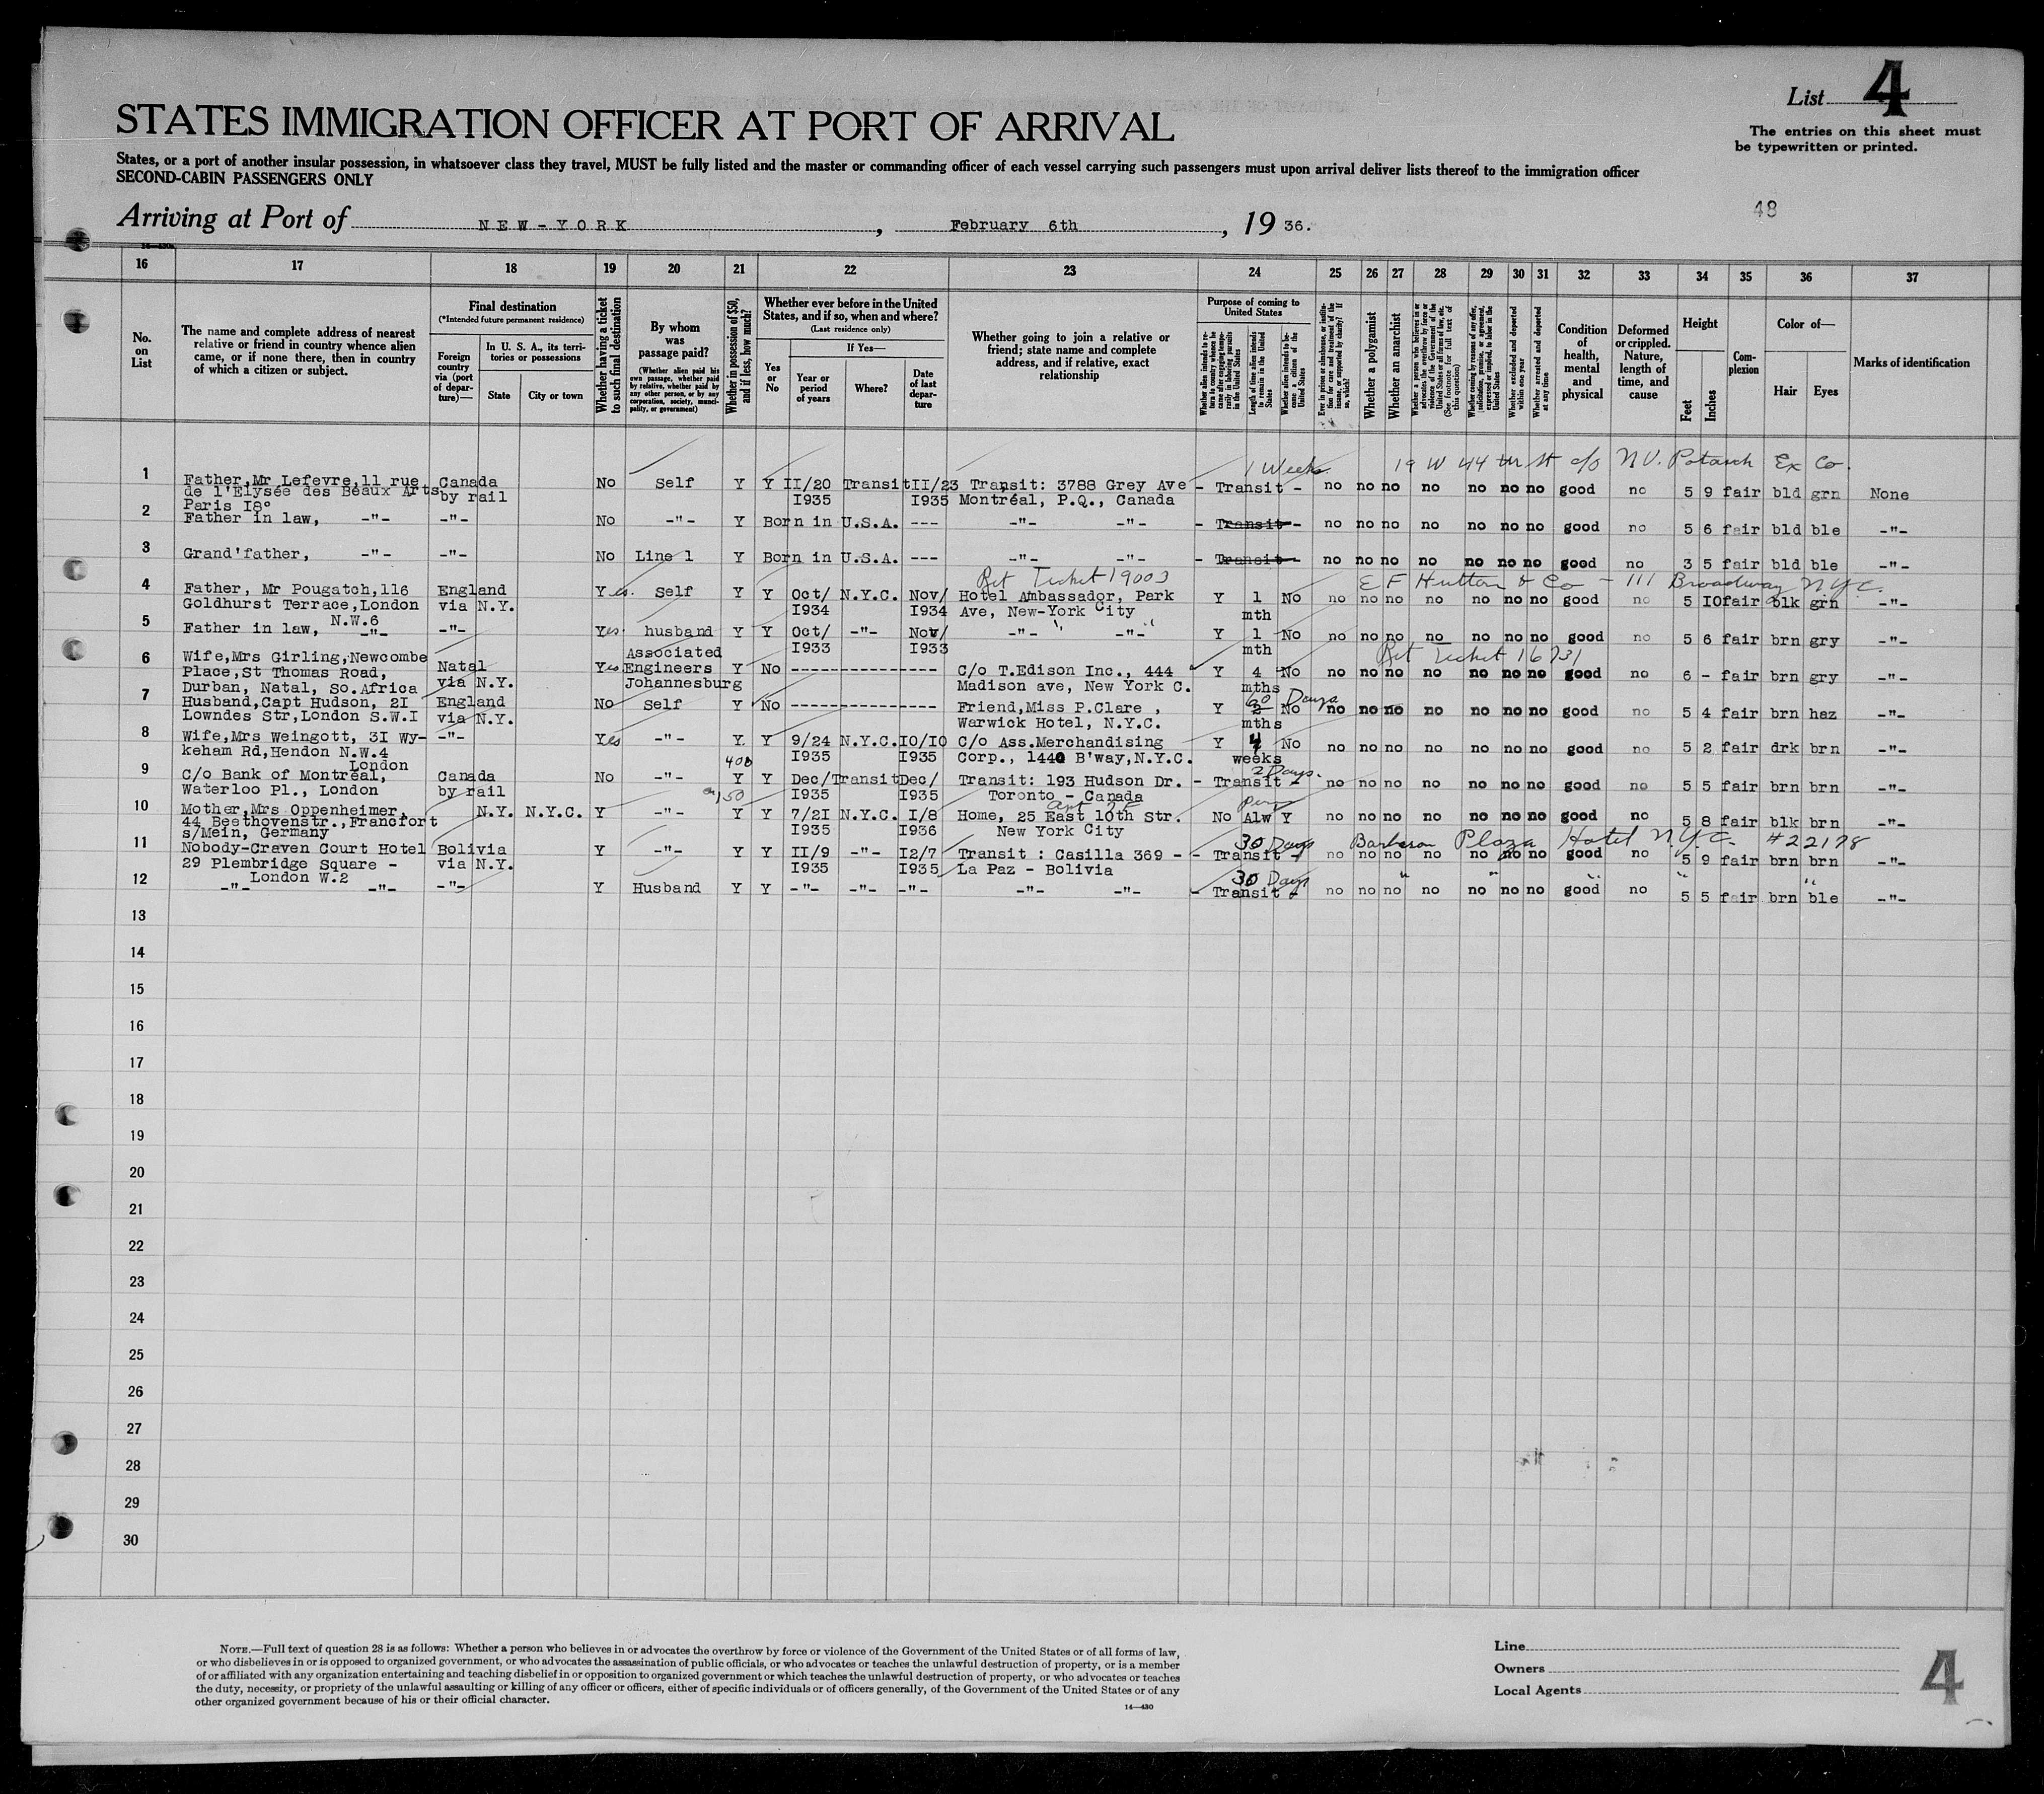 List 4
The entries on this sheet must
be typewritten or printed.
STATES IMMIGRATION OFFICER AT PORT OF ARRIVAL
States, or a port of another insular possession, in whatsoever class they travel, MUST be fully listed and the master or commanding officer of each vessel carrying such passengers must upon arrival deliver lists thereof to the immigration officer
SECOND-CABIN PASSENGERS ONLY
48
Arriving at Port of NEW-YORK, February 6th, 19 36.
16 17 18 19 20 21 22 23 24 25 26 27 28 29 30 31 32 33 34 35 36 37
No. on List
The name and complete address of nearest relative or friend in country whence alien came, or if none there, then in country of which a citizen or subject.
Final destination
(*Intended future permanent residence)
Foreign country via (port of departure)—
In U. S. A., its territories or possessions
State
City or town
Whether having a ticket to such final destination
By whom was passage paid?
(Whether alien paid his own passage, whether paid by relative, whether paid by any other person, or by any corporation, society, municipality, or government)
Whether in possession of $50, and if less, how much?
Whether ever before in the United States, and if so, when and where?
(Last residence only)
Yes or No
If Yes—
Year or period of years
Where?
Date of last departure
Whether going to join a relative or friend; state name and complete address, and if relative, exact relationship
Purpose of coming to United States
Whether alien intends to return to country whence he came after engaging temporarily in laboring pursuits in the United States
Length of time alien intends to remain in the United States
Whether alien intends to become a citizen of the United States
Ever in prison or almshouse, or institution for care and treatment of the insane, or supported by charity? If so, which?
Whether a polygamist
Whether an anarchist
Whether a person who believes in or advocates the overthrow by force or violence of the Government of the United States or all forms of law, etc. (See footnote for full text of this question)
Whether coming by reason of any offer, solicitation, promise, or agreement, expressed or implied, to labor in the United States
Whether excluded and deported within one year
Whether arrested and deported at any time
Condition of health, mental and physical
Deformed or crippled. Nature, length of time, and cause
Height
Feet
Inches
Complexion
Color of—
Hair
Eyes
Marks of identification
1 Weeks 19 W 44 th St c/o N.V. Potash Ex Co.
1 Father,Mr Lefevre,11 rue Canada No Self Y Y II/20 Transit II/23 Transit: 3788 Grey Ave - Transit - no no no no no no no good no 5 9 fair bld grn None
de l'Elysée des Beaux Arts by rail I935 I935 Montréal, P.Q., Canada
Paris I8°
2 Father in law, -"- -"- No -"- Y Born in U.S.A. --- -"- -"- - Transit - no no no no no no no good no 5 6 fair bld ble -"-
3 Grand'father, -"- -"- No Line 1 Y Born in U.S.A. --- -"- -"- - Transit - no no no no no no no good no 3 5 fair bld ble -"-
Ret Ticket 19003 E F Hutton & Co - 111 Broadway N.Y.C.
4 Father, Mr Pougatch,116 England Yes. Self Y Y Oct/ N.Y.C. Nov/ Hotel Ambassador, Park Y 1 No no no no no no no no good no 5 IO fair blk grn -"-
Goldhurst Terrace,London via N.Y. I934 I934 Ave, New-York City mth
N.W.6
5 Father in law, -"- -"- Yes husband Y Y Oct/ -"- Nov/ -"- -"- Y 1 No no no no no no no no good no 5 6 fair brn gry -"-
I933 I933 mth
Ret Ticket 16731
6 Wife,Mrs Girling,Newcombe Natal Yes Associated Y No --------------- C/o T.Edison Inc., 444 Y 4 No no no no no no no no good no 6 - fair brn gry -"-
Place,St Thomas Road, via N.Y. Engineers Madison ave, New York C. mths
Durban, Natal, So.Africa Johannesburg
60 Days
7 Husband,Capt Hudson, 2I England No Self Y No --------------- Friend,Miss P.Clare , Y 2 No no no no no no no no good no 5 4 fair brn haz -"-
Lowndes Str,London S.W.I via N.Y. Warwick Hotel, N.Y.C. mths
8 Wife,Mrs Weingott, 3I Wy- -"- Yes -"- Y. Y 9/24 N.Y.C. IO/IO C/o Ass.Merchandising Y 4 No no no no no no no no good no 5 2 fair drk brn -"-
keham Rd,Hendon N.W.4 400 I935 I935 Corp., 1440 B'way,N.Y.C. weeks
London 2 Days.
9 C/o Bank of Montréal, Canada No -"- Y Y Dec/ Transit Dec/ Transit: 193 Hudson Dr. - Transit - no no no no no no no good no 5 5 fair brn brn -"-
Waterloo Pl., London by rail 150 I935 I935 Toronto - Canada
10 Mother,Mrs Oppenheimer, N.Y. N.Y.C. Y -"- Y Y 7/2I N.Y.C. I/8 Home, 25 East 10th Str. No Alw Y no no no no no no no good no 5 8 fair blk brn -"-
44 Beethovenstr.,Francfort I935 I936 New York City
s/Mein, Germany
30 Days Barbizon Plaza Hotel N.Y.C. #22178
11 Nobody-Craven Court Hotel Bolivia Y -"- Y Y II/9 -"- I2/7 Transit : Casilla 369 - - Transit - no no no no no no no good no 5 9 fair brn brn -"-
29 Plembridge Square - via N.Y. I935 I935 La Paz - Bolivia
London W.2 30 Days
12 -"- -"- -"- Y Husband Y Y -"- -"- -"- -"- -"- - Transit - no no no no no no no good no 5 5 fair brn ble -"-
13
14
15
16
17
18
19
20
21
22
23
24
25
26
27
28
29
30
NOTE.—Full text of question 28 is as follows: Whether a person who believes in or advocates the overthrow by force or violence of the Government of the United States or of all forms of law,
or who disbelieves in or is opposed to organized government, or who advocates the assassination of public officials, or who advocates or teaches the unlawful destruction of property, or is a member
of or affiliated with any organization entertaining and teaching disbelief in or opposition to organized government or which teaches the unlawful destruction of property, or who advocates or teaches
the duty, necessity, or propriety of the unlawful assaulting or killing of any officer or officers, either of specific individuals or of officers generally, of the Government of the United States or of any
other organized government because of his or their official character.
14—430
Line
Owners
Local Agents
4